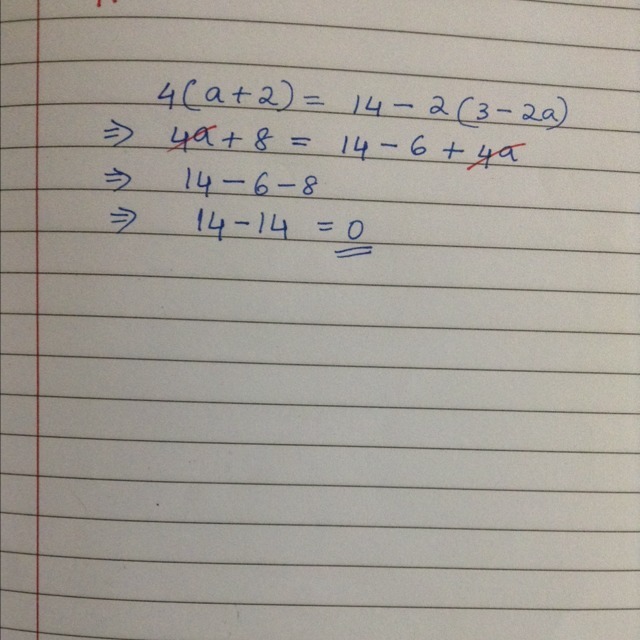 4(a+2) = 14 - 2(3-2a)
⇒ 4a + 8 = 14 - 6 + 4a
⇒ 14 - 6 - 8
⇒ 14 - 14 = 0